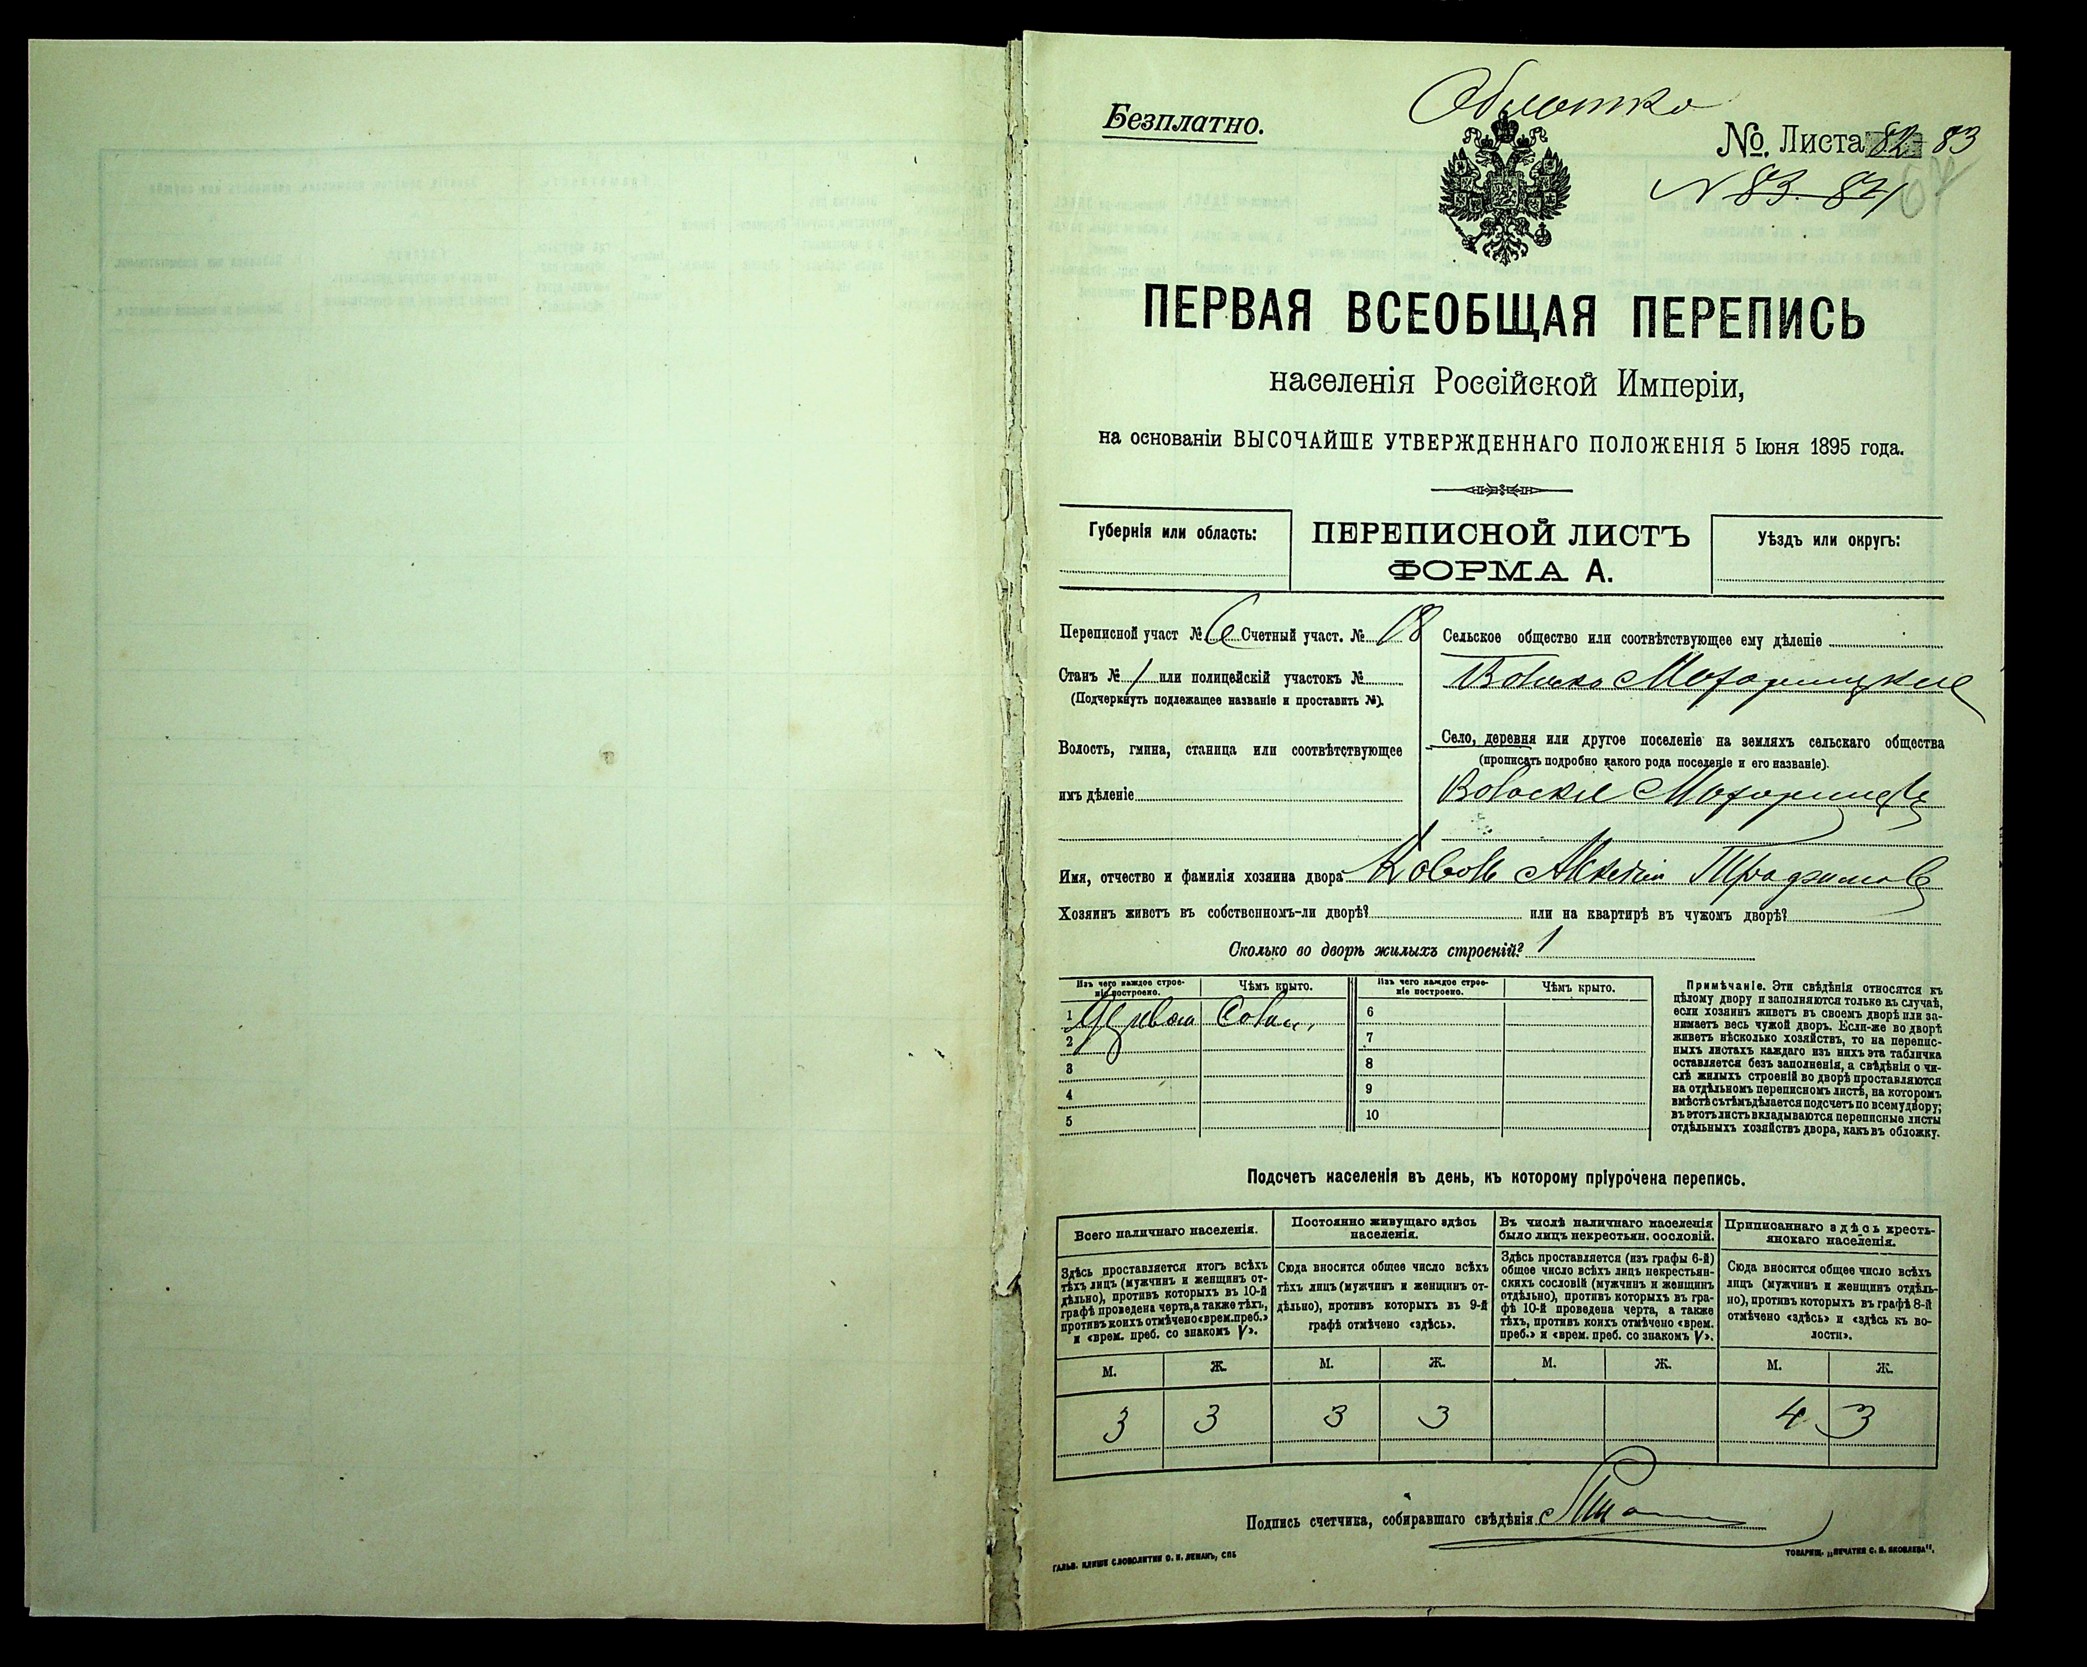 Безплатно.
Обложка
№ Листа 82 83
№ 83. 84
ПЕРВАЯ ВСЕОБЩАЯ ПЕРЕПИСЬ
населенія Россійской Имперіи,
на основаніи ВЫСОЧАЙШЕ УТВЕРЖДЕННАГО ПОЛОЖЕНІЯ 5 Іюня 1895 года.
Губернія или область:
ПЕРЕПИСНОЙ ЛИСТЪ
ФОРМА А.
Уѣздъ или округъ:
Переписной участ № 6 Счетный участ. № 18
Станъ № 1 или полицейскій участокъ №
(Подчеркнуть подлежащее названіе и проставить №).
Волость, гмина, станица или соотвѣтствующее
имъ дѣленіе
Сельское общество или соотвѣтствующее ему дѣленіе
Село, деревня или другое поселеніе на земляхъ сельскаго общества
(прописать подробно какого рода поселеніе и его названіе).
Имя, отчество и фамилія хозяина двора
Хозяинъ живетъ въ собственномъ-ли дворѣ? или на квартирѣ въ чужомъ дворѣ?
Сколько во дворѣ жилыхъ строеній? 1
Изъ чего каждое строе-
ніе построено.
Чѣмъ крыто.
Изъ чего каждое строе-
ніе построено.
Чѣмъ крыто.
1
2
3
4
5
6
7
8
9
10
Примѣчаніе. Эти свѣдѣнія относятся къ
цѣлому двору и заполняются только въ случаѣ,
если хозяинъ живетъ въ своемъ дворѣ или за-
нимаетъ весь чужой дворъ. Если-же во дворѣ
живетъ нѣсколько хозяйствъ, то на перепис-
ныхъ листахъ каждаго изъ нихъ эта табличка
оставляется безъ заполненія, а свѣдѣнія о чи-
слѣ жилыхъ строеній во дворѣ проставляются
на отдѣльномъ переписномъ листѣ, на которомъ
вмѣстѣ съ тѣмъ дѣлается подсчетъ по всему двору;
въ этотъ листъ вкладываются переписные листы
отдѣльныхъ хозяйствъ двора, какъ въ обложку.
Подсчетъ населенія въ день, къ которому пріурочена перепись.
Всего наличнаго населенія.
Здѣсь проставляется итогъ всѣхъ
тѣхъ лицъ (мужчинъ и женщинъ от-
дѣльно), противъ которыхъ въ 10-й
графѣ проведена черта, а также тѣхъ,
противъ коихъ отмѣчено «врем. преб.»
и «врем. преб. со знакомъ V».
Постоянно живущаго здѣсь
населенія.
Сюда вносится общее число всѣхъ
тѣхъ лицъ (мужчинъ и женщинъ от-
дѣльно), противъ которыхъ въ 9-й
графѣ отмѣчено «здѣсь».
Въ числѣ наличнаго населенія
было лицъ некрестьян. сословій.
Здѣсь проставляется (изъ графы 6-й)
общее число всѣхъ лицъ некрестьян-
скихъ сословій (мужчинъ и женщинъ
отдѣльно), противъ которыхъ въ гра-
фѣ 10-й проведена черта, а также
тѣхъ, противъ коихъ отмѣчено «врем.
преб.» и «врем. преб. со знакомъ V».
Приписаннаго здѣсь кресть-
янскаго населенія.
Сюда вносится общее число всѣхъ
лицъ (мужчинъ и женщинъ отдѣль-
но), противъ которыхъ въ графѣ 8-й
отмѣчено «здѣсь» и «здѣсь къ во-
лости».
М. Ж. М. Ж. М. Ж. М. Ж.
3 3 3 3 4 3
Подпись счетчика, собиравшаго свѣдѣнія
ГАЛЬВ. КЛИШЕ СЛОВОЛИТНИ О. И. ЛЕМАНЪ, СПБ
ТОВАРИЩ. „ПЕЧАТНЯ С. П. ЯКОВЛЕВА".